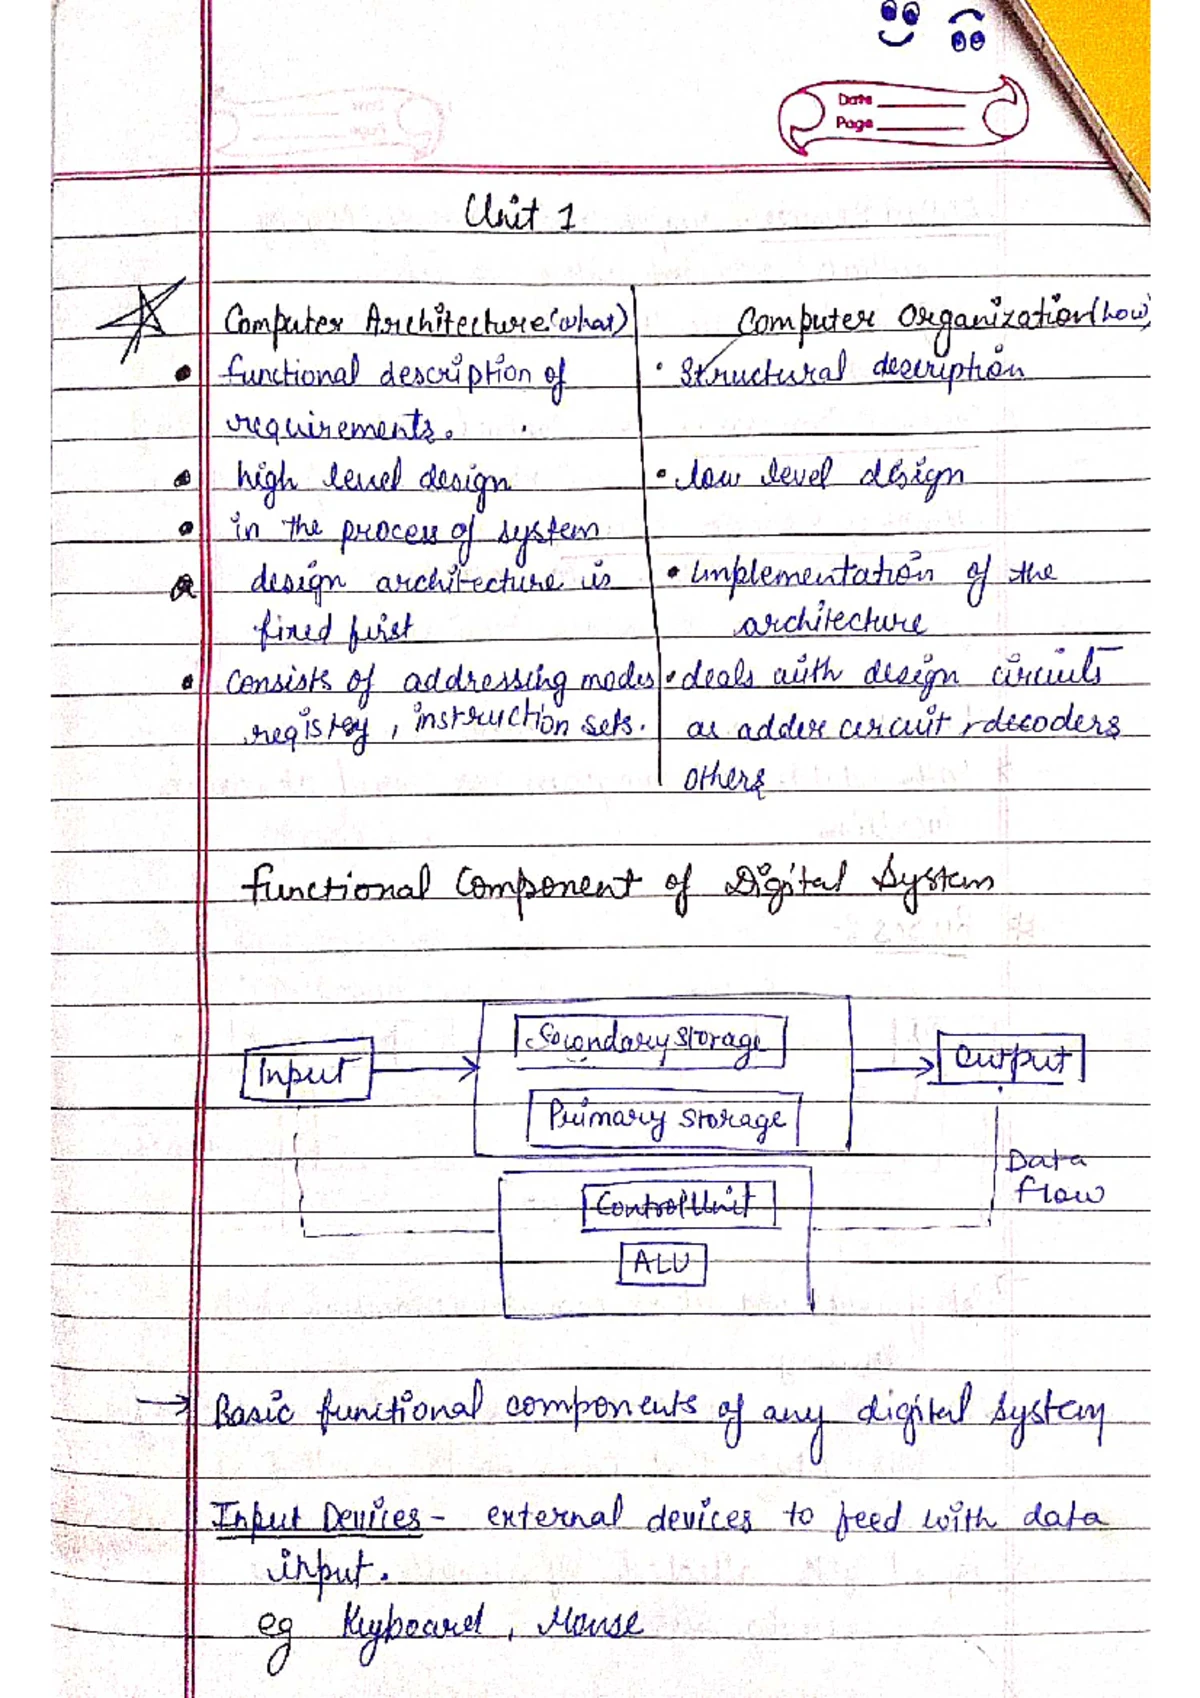 Date
Page
Unit 1
Computer Architecture (what)
Computer Organization (how)
functional description of
requirements.
• Structural description
high level design
• low level design
in the process of system
design architecture is
fixed first
• Implementation of the
architecture
consists of addressing modes
registry, instruction sets.
• deals with design circuits
as adder circuit, decoders
others
functional Component of Digital System
Secondary Storage
Input
Output
Primary Storage
Data
flow
Control Unit
ALU
→ Basic functional components of any digital System
Input Devices - external devices to feed with data
input.
eg Keyboard, Mouse